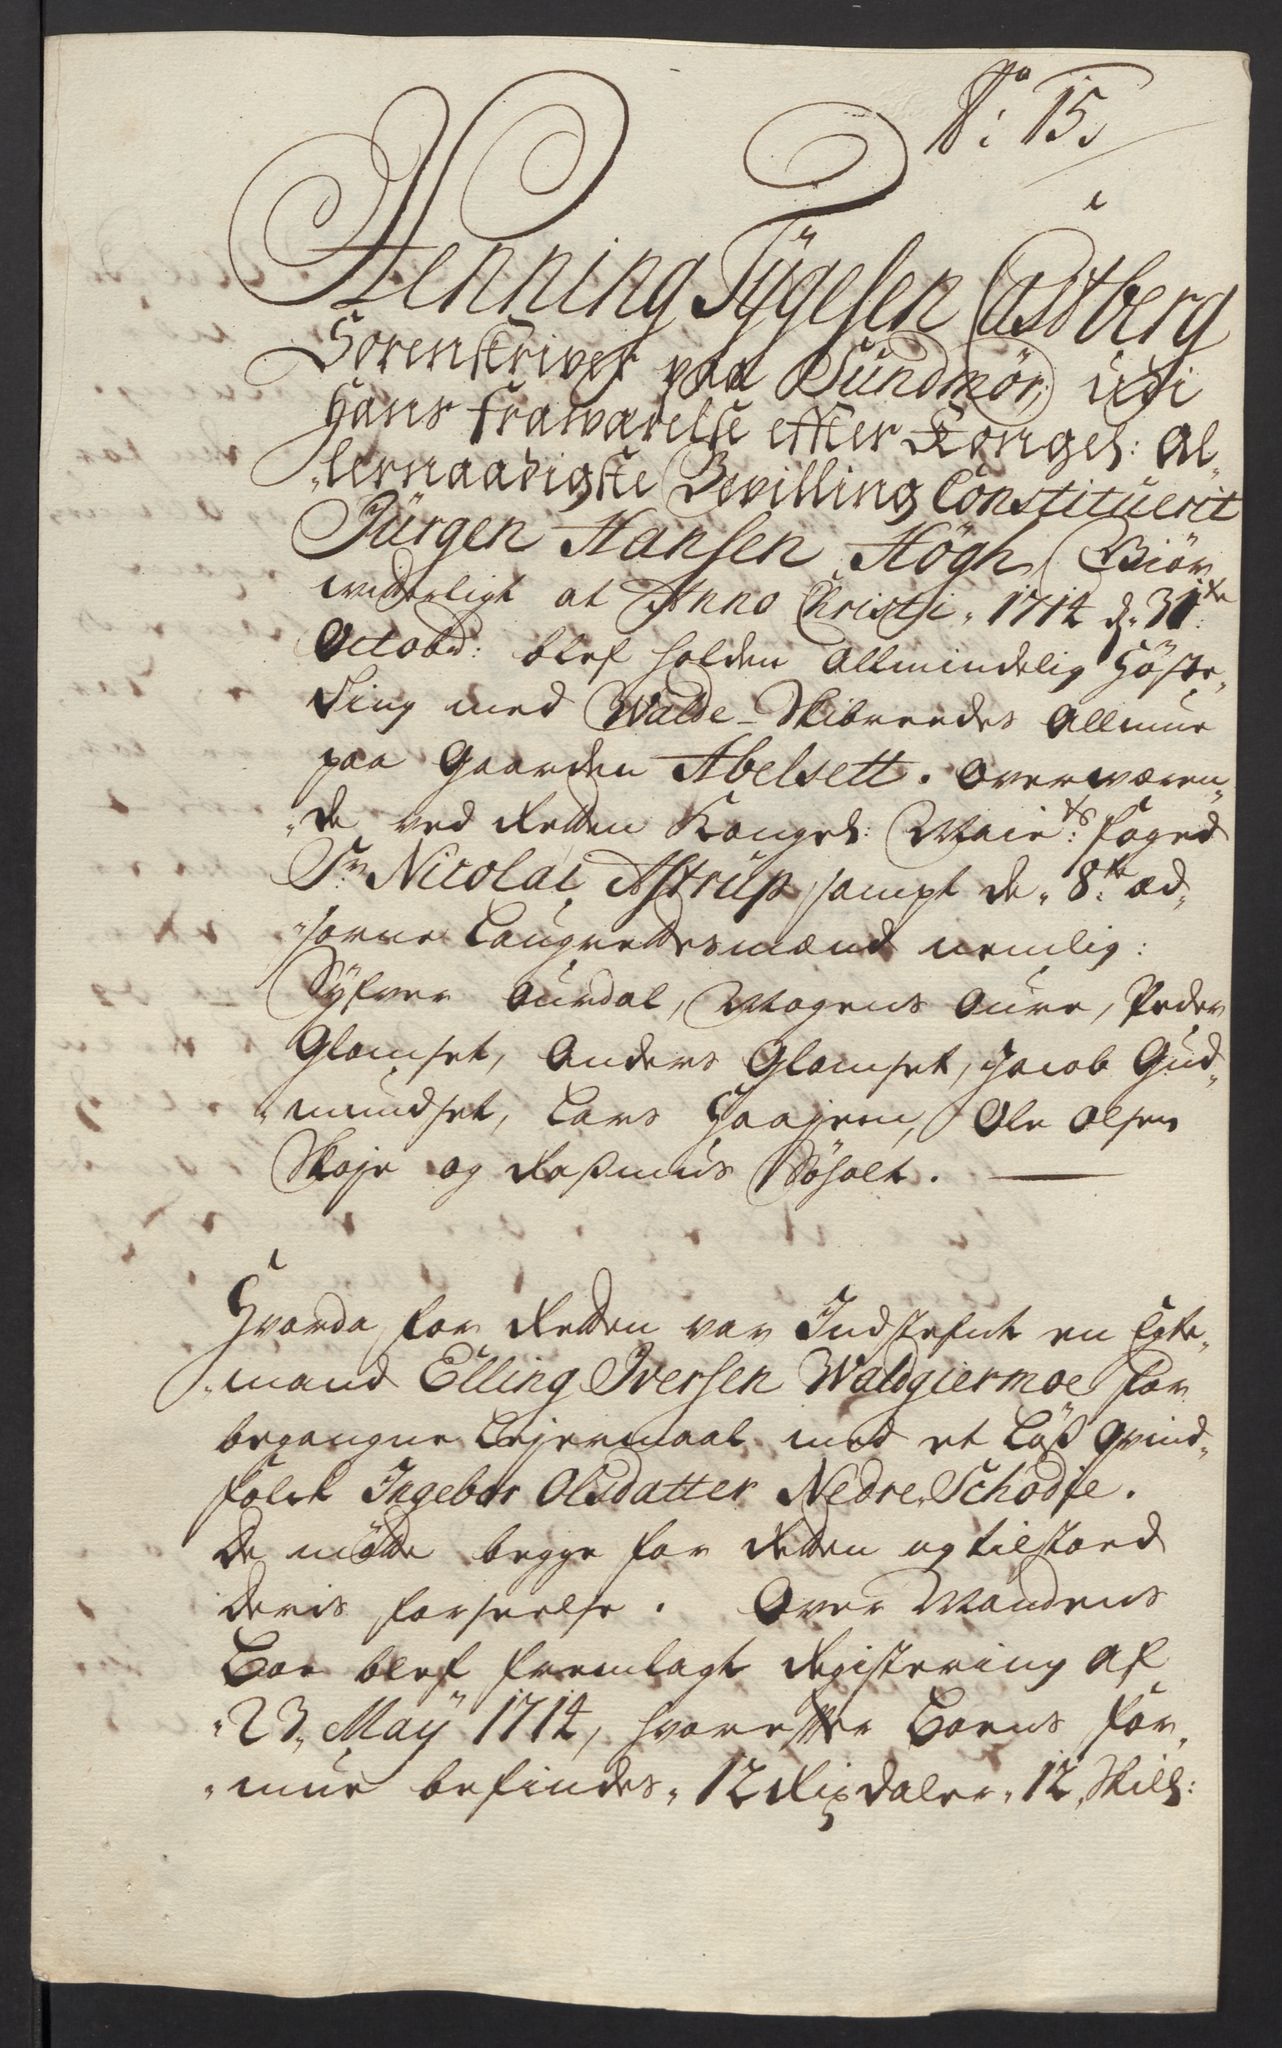 N:o 15.
Henning Tygesen Castberg
Sorenskriver paa Sundmör, udi
Hans frawærelse effter Kongel: al„
„lernaadigste Bevilling Constituerit
Jürgen Hansen Högh Giör
witterligt at Anno Christi „ 1714 d. 31te
Octobr: blef holden Allmindelig Höste„
Ting med Walde-Skibreedes Allmue
paa Gaarden Abelsett. Overwæren„
„de ved Retten Kongel: Maiets: Foged
Sr Nicolai Astrup sampt de „ 8te æd„
„sorne Laugrettesmænd nemlig:
Syfver Aurdal, Mogens Aure, Peder
Glomset, Anders Glomset, Jacob Gud„
„mundset, Lars Haajem, Ole Olsen
Skoje og Rasmus Söholt.
Hvorda for Retten var Indstefnt en Egte„
„mand Elling Iversen Waldgiermoe for
begangne Lejermaal med et Löß Qvind„
folck Ingebor Olsdatter Nedre Schodje.
De mötte begge for Retten og tilstoed
deris forseelse. Over Mandens
Boe blef fremlagt Registering af
„23„ May 1714, hvorefter Boens For„
„mue befindes „ 12 Rixdaler „ 12 Skill: